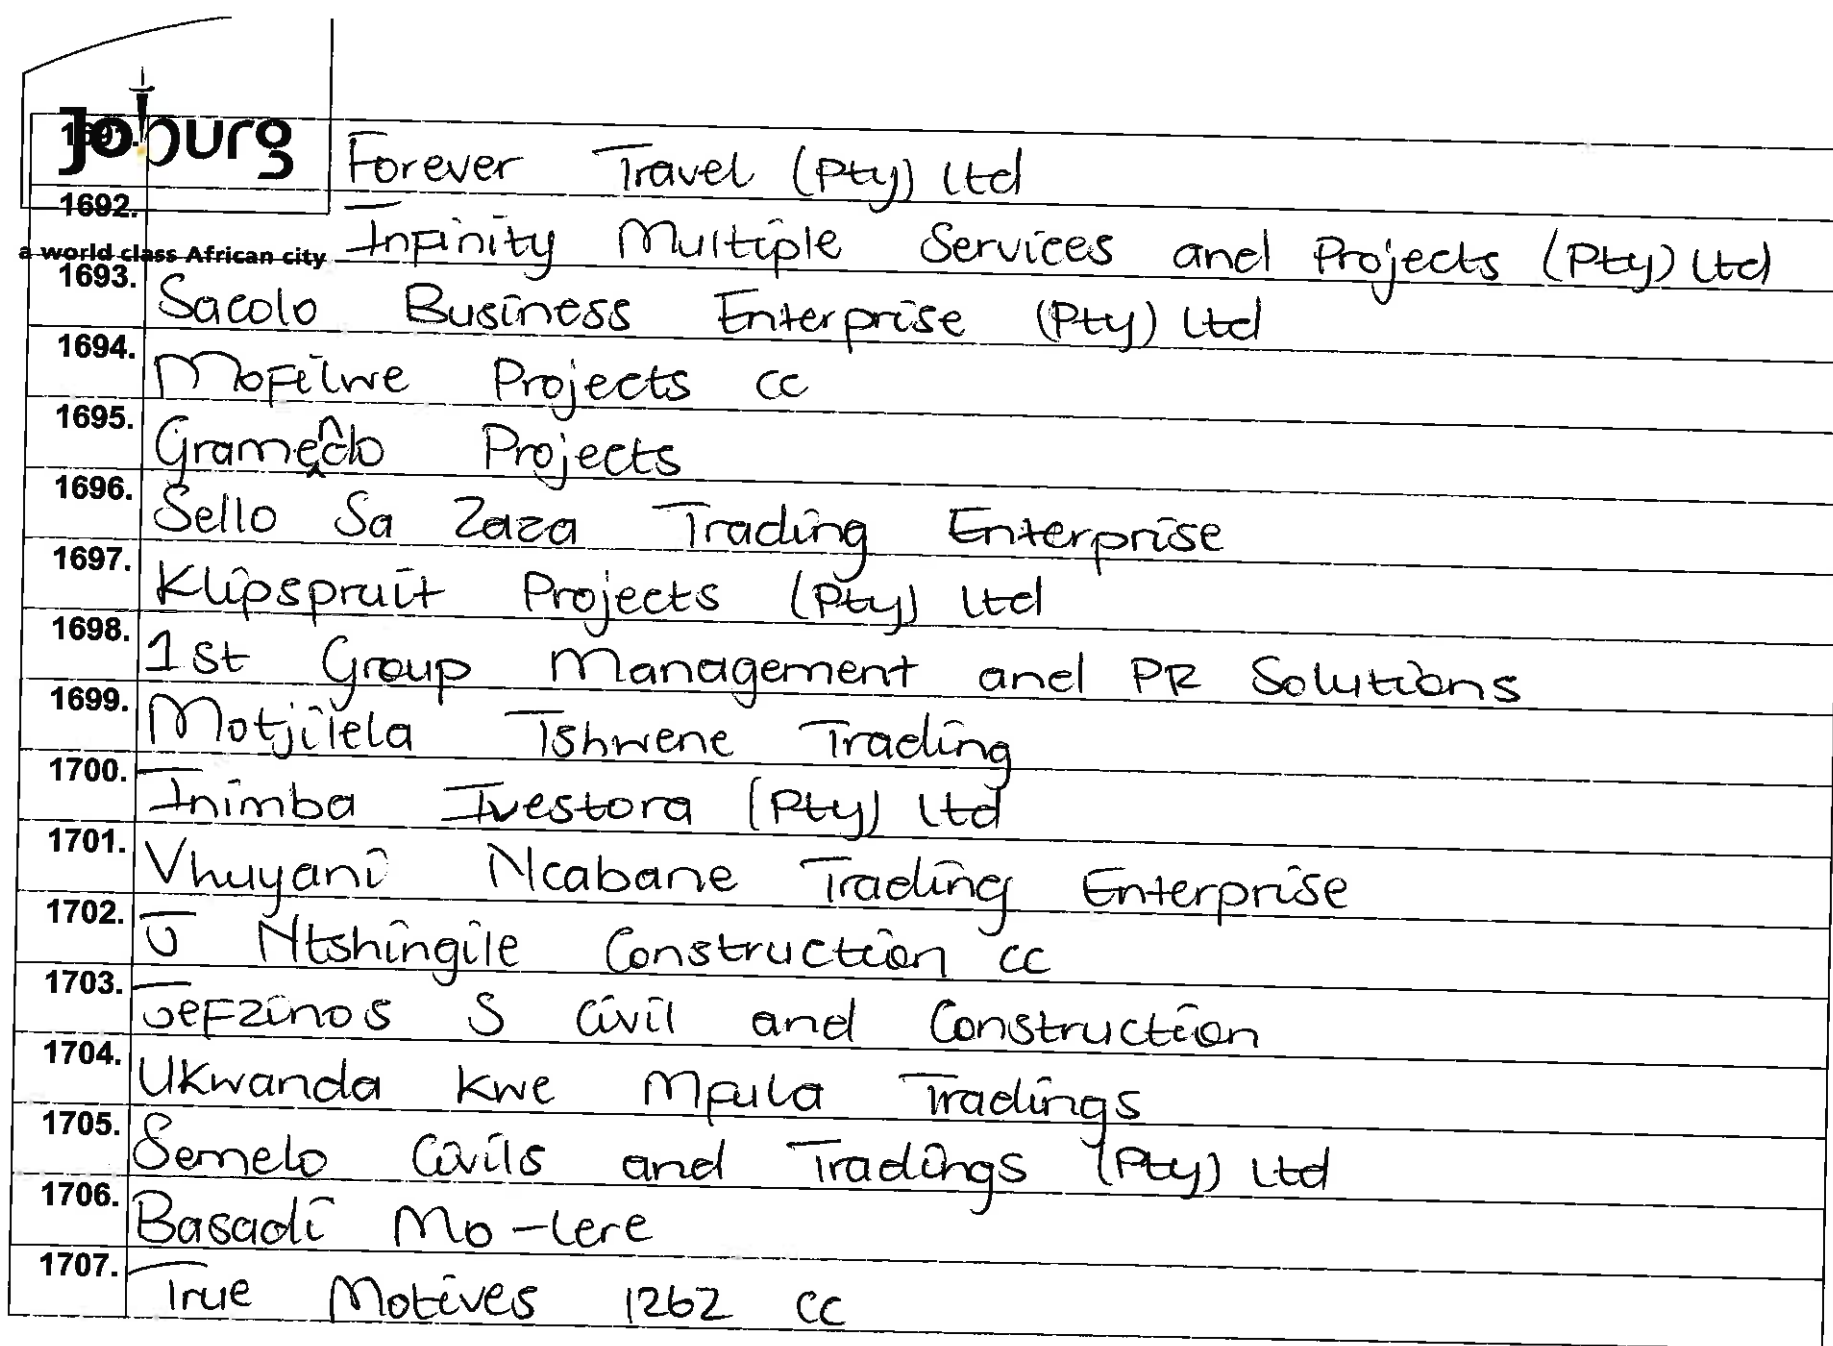 Joburg
1691. Forever Travel (Pty) Ltd
1692. Infinity Multiple Services and Projects (Pty) Ltd
a world class African city
1693. Sacolo Business Enterprise (Pty) Ltd
1694. Mofilwe Projects cc
1695. Gramendo Projects
1696. Sello Sa Zaza Trading Enterprise
1697. Klipspruit Projects (Pty) Ltd
1698. 1st Group Management and PR Solutions
1699. Motjilela Tshwene Trading
1700. Inimba Ivestora (Pty) Ltd
1701. Vhuyani Ncabane Trading Enterprise
1702. J Ntshingile Construction cc
1703. Jefzinos S Civil and Construction
1704. Ukwanda Kwe Mfula Tradings
1705. Semelo Civils and Tradings (Pty) Ltd
1706. Basadi Mo-lere
1707. True Motives 1262 cc